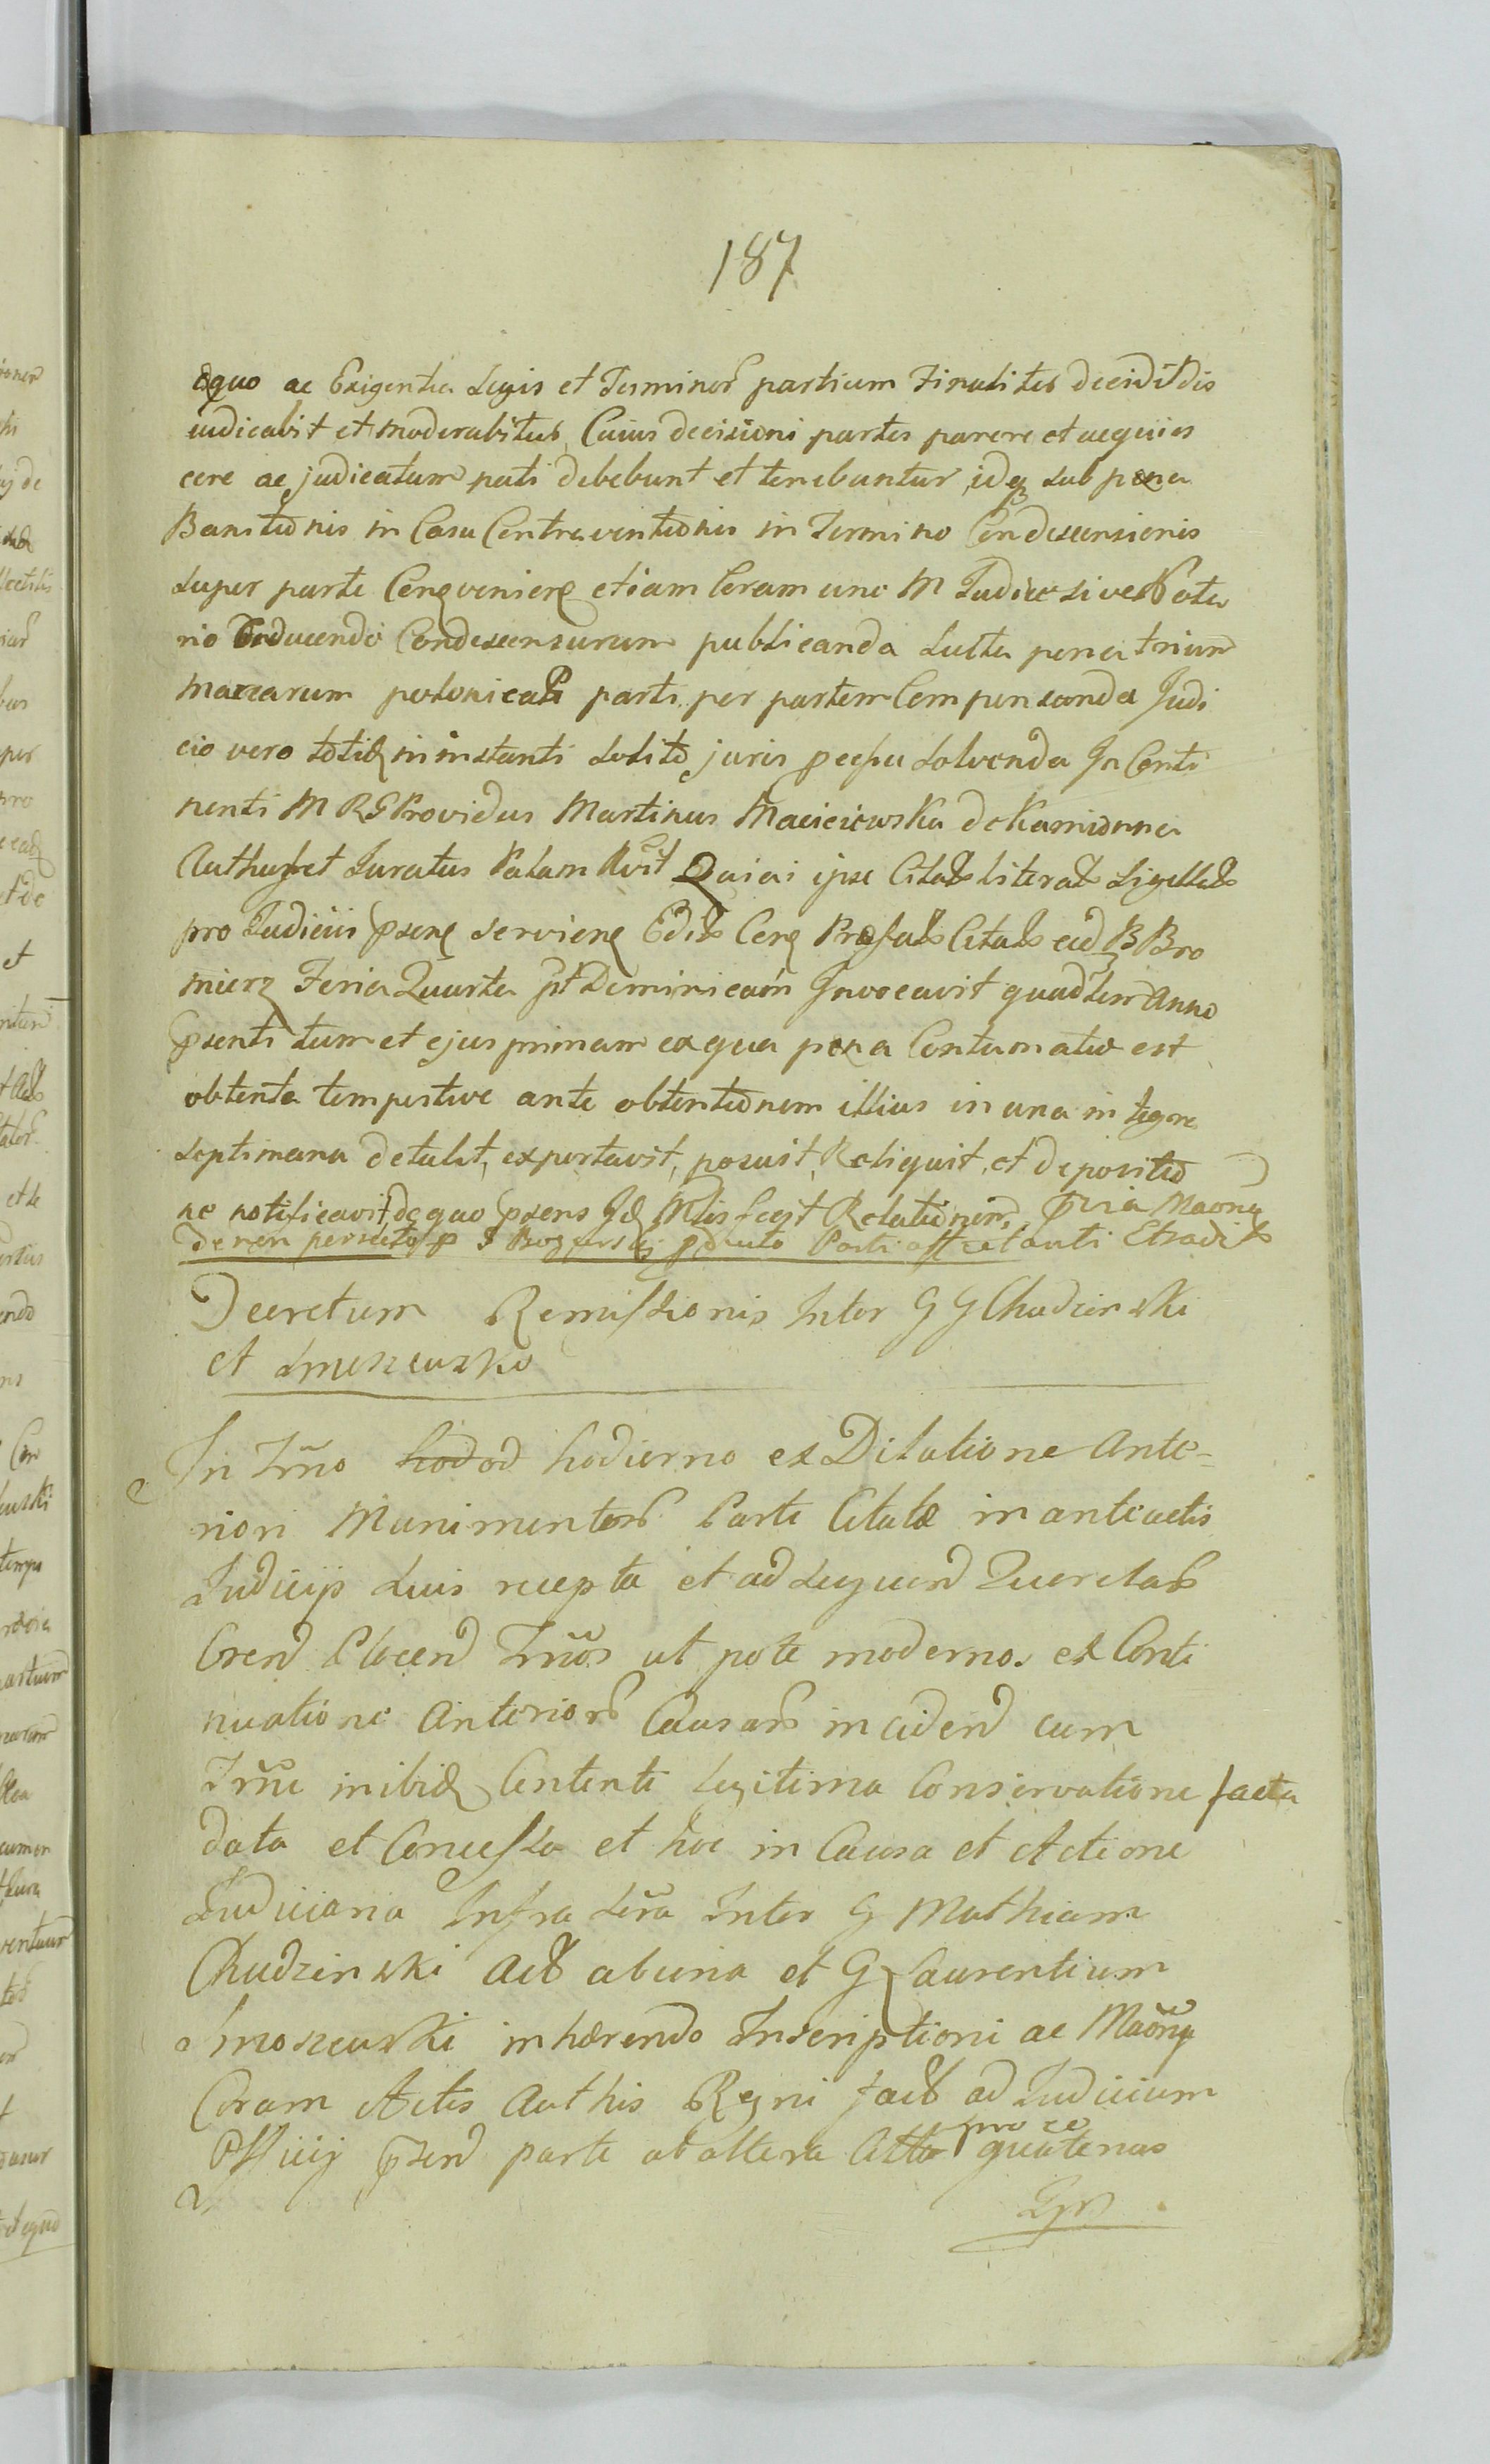 187
æquo ac Exigentia Legis et Terminor partium Finaliter decidit dis
iudicabit et moderabitur, Cuius decisioni partes parere et acquies
cere ac judicatum pati debebunt et tenebuntur, idq sub pæna
Banitionis in Casu Contraventionis in Termino Condescensionis
super parte Conqveniere etiam Coram uno M Judice sive Nota
rio Educendo Condescensurum publicanda Lutta pena trium
marcarum polonicar parti per partem Compensanda Judi
cio vero totid in instanti solito juris solvenda In Conti
nenti M RG Providus Martinus Macieiewska de Kamionna
Authus et Juratus Palam Rvit Quiai ipse Citatt literatt Sigellatt
pro Judiciis Psenq servienq Cenq Citatt ead B Bro
mierz Feria Quarta pt Dominicam Invocavit quadlem Anno
Psenti tum et ejus primam ex qua pæna Contumatiæ est
obtenta tempestive ante obtentionem illius in una integra
septimana detulit, exportavit, posuit, Reliquit, et depositio
ne notificavit, de quo Psens Id Mtis fecit Relationem, Maonq
de non Parti affectanti Etradit
Decretum Remissionis Inter G G Chudzinski
et Smoszewsko
In Trno hodod hodierno ex Dilatione Ante=
riori Munimentor Parte Citatæ in anteactis
Judicijs suis recepta et ad sequend Querelar
Crend Plocend Trnos ut pote moderno. ex Conti
nuatione Anterior Causar inciden cum
Trni inibid Contenti Legitima Conservatione facta
data et Concessa et hoc in Causa et Actione
Judiciaria Infra sera Inter G Mathiam
Chudzinski Act ab una et G Laurentium
Smoszewski inhærendo Inscriptioni ac Maonq
Coram Actis Authis Regni fact ad Judicium
Officij Psend parte ab altera Citto pro eo quatenus